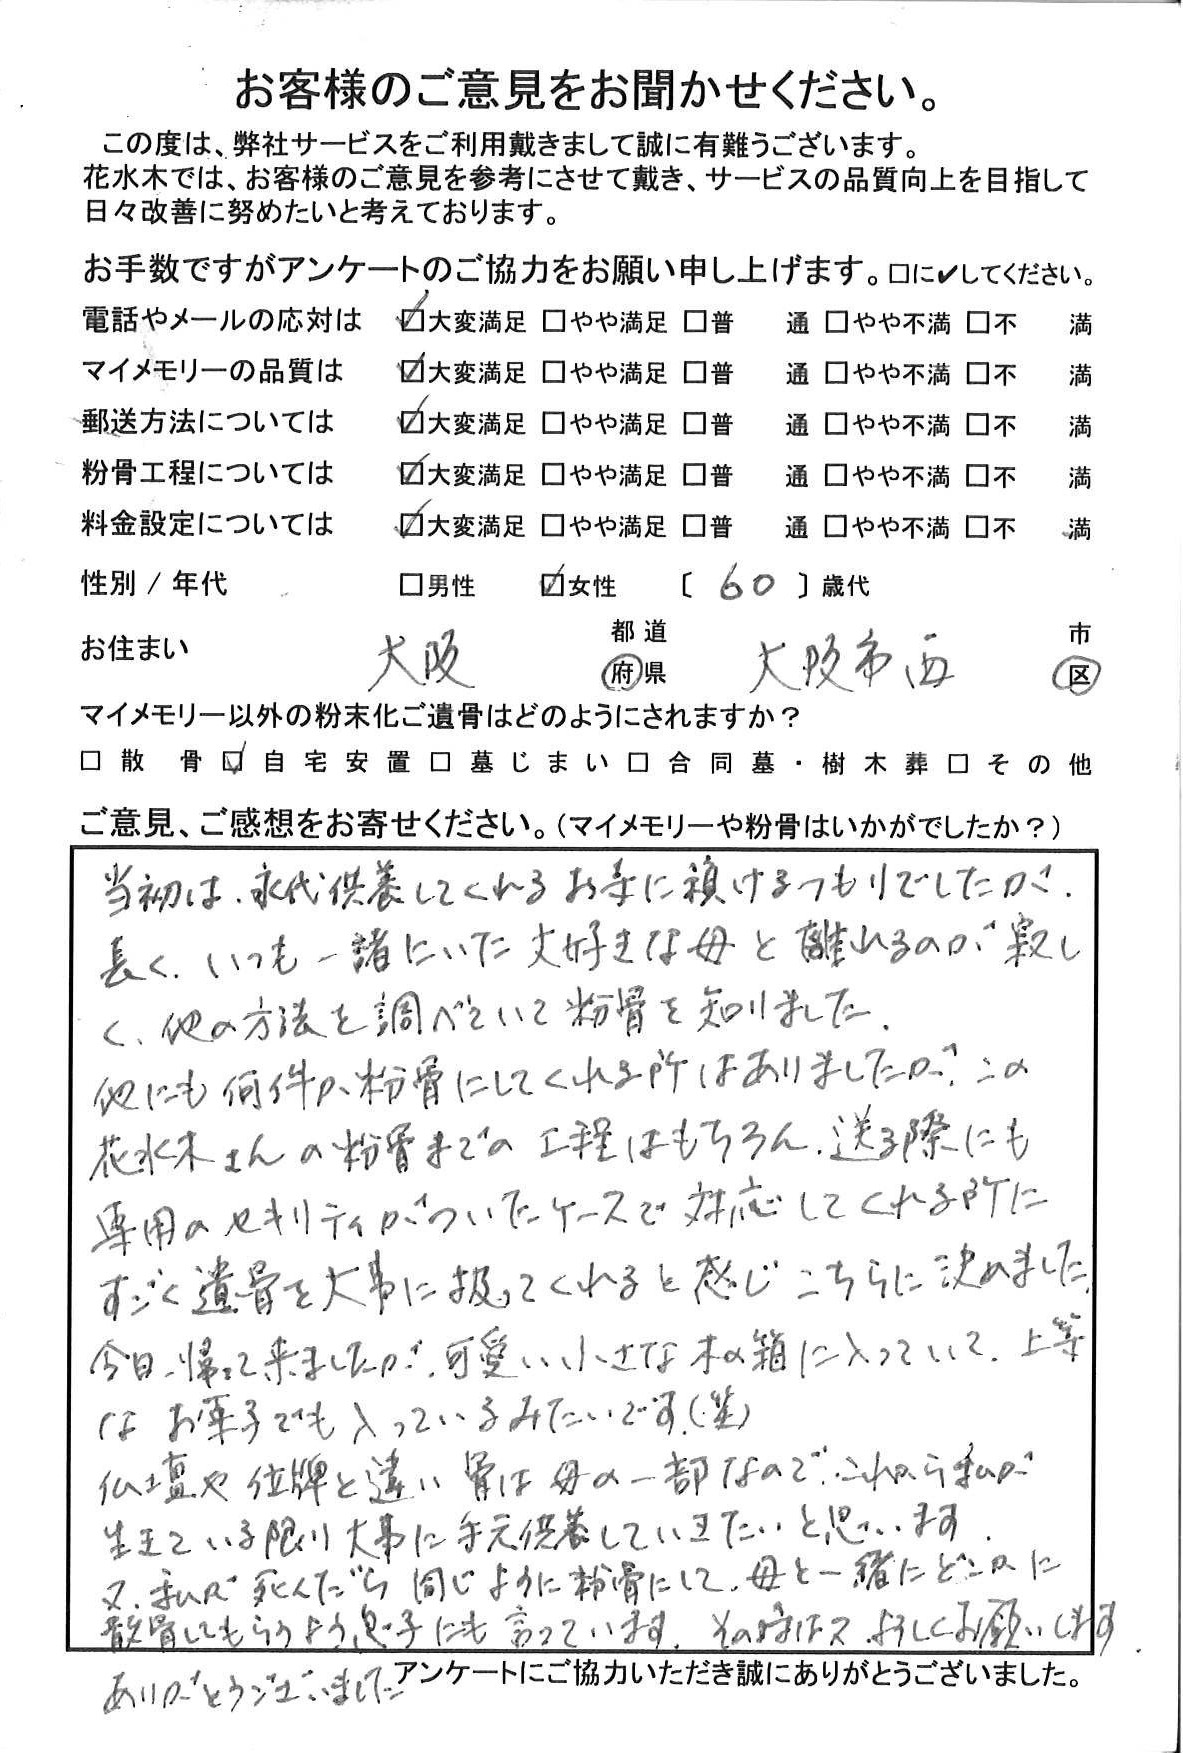 お客様のご意見をお聞かせください。
この度は、弊社サービスをご利用戴きまして誠に有難うございます。
花水木では、お客様のご意見を参考にさせて戴き、サービスの品質向上を目指して
日々改善に努めたいと考えております。
お手数ですがアンケートのご協力をお願い申し上げます。□に✔してください。
電話やメールの応対は ☑大変満足 □やや満足 □普 通 □やや不満 □不 満
マイメモリーの品質は ☑大変満足 □やや満足 □普 通 □やや不満 □不 満
郵送方法については ☑大変満足 □やや満足 □普 通 □やや不満 □不 満
粉骨工程については ☑大変満足 □やや満足 □普 通 □やや不満 □不 満
料金設定については ☑大変満足 □やや満足 □普 通 □やや不満 □不 満
性別 / 年代 □男性 ☑女性 〔 60 〕歳代
お住まい 大阪 都道府県 大阪市西 市区
マイメモリー以外の粉末化ご遺骨はどのようにされますか？
□散骨 ☑自宅安置 □墓じまい □合同墓・樹木葬 □その他
ご意見、ご感想をお寄せください。（マイメモリーや粉骨はいかがでしたか？）
当初は、永代供養してくれるお寺に預けるつもりでしたが、
長く、いつも一諸にいた大好きな母と離れるのが寂し
く、他の方法を調べていて粉骨を知りました。
他にも何件か粉骨にしてくれる所はありましたが、この
花水木さんの粉骨までの工程はもちろん、送る際にも
専用のセキリティがついたケースで対応してくれる所に
すごく遺骨を大事に扱ってくれると感じこちらに決めました。
今日、帰って来ましたが、可愛い小さな木の箱に入っていて、上等
なお菓子でも入っているみたいです。(笑)
仏壇や位牌と違い骨は母の一部なので、これから私が
生きている限り大事に手元供養していきたいと思います。
又、私が死んだら同じように粉骨にして、母と一緒にどこかに
散骨してもらうよう息子にも言っています。その時はスよろしくお願いします
ありがとうございました
アンケートにご協力いただき誠にありがとうございました。